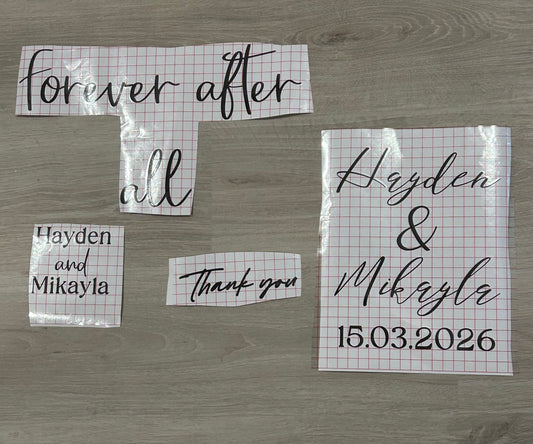 forever after
all
Hayden
and
Mikayla
Thank you
Hayden
&
Mikayla
15.03.2026